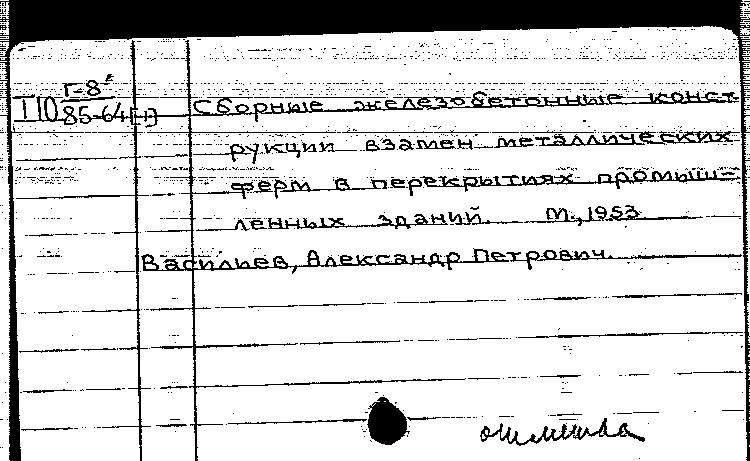 Г-8
ПО 85-64[-1] Сборные железобетонные конст-
рукции взамен металлических
ферм в перекрытиях промыш-
ленных зданий. М., 1953
Васильев, Александр Петрович.